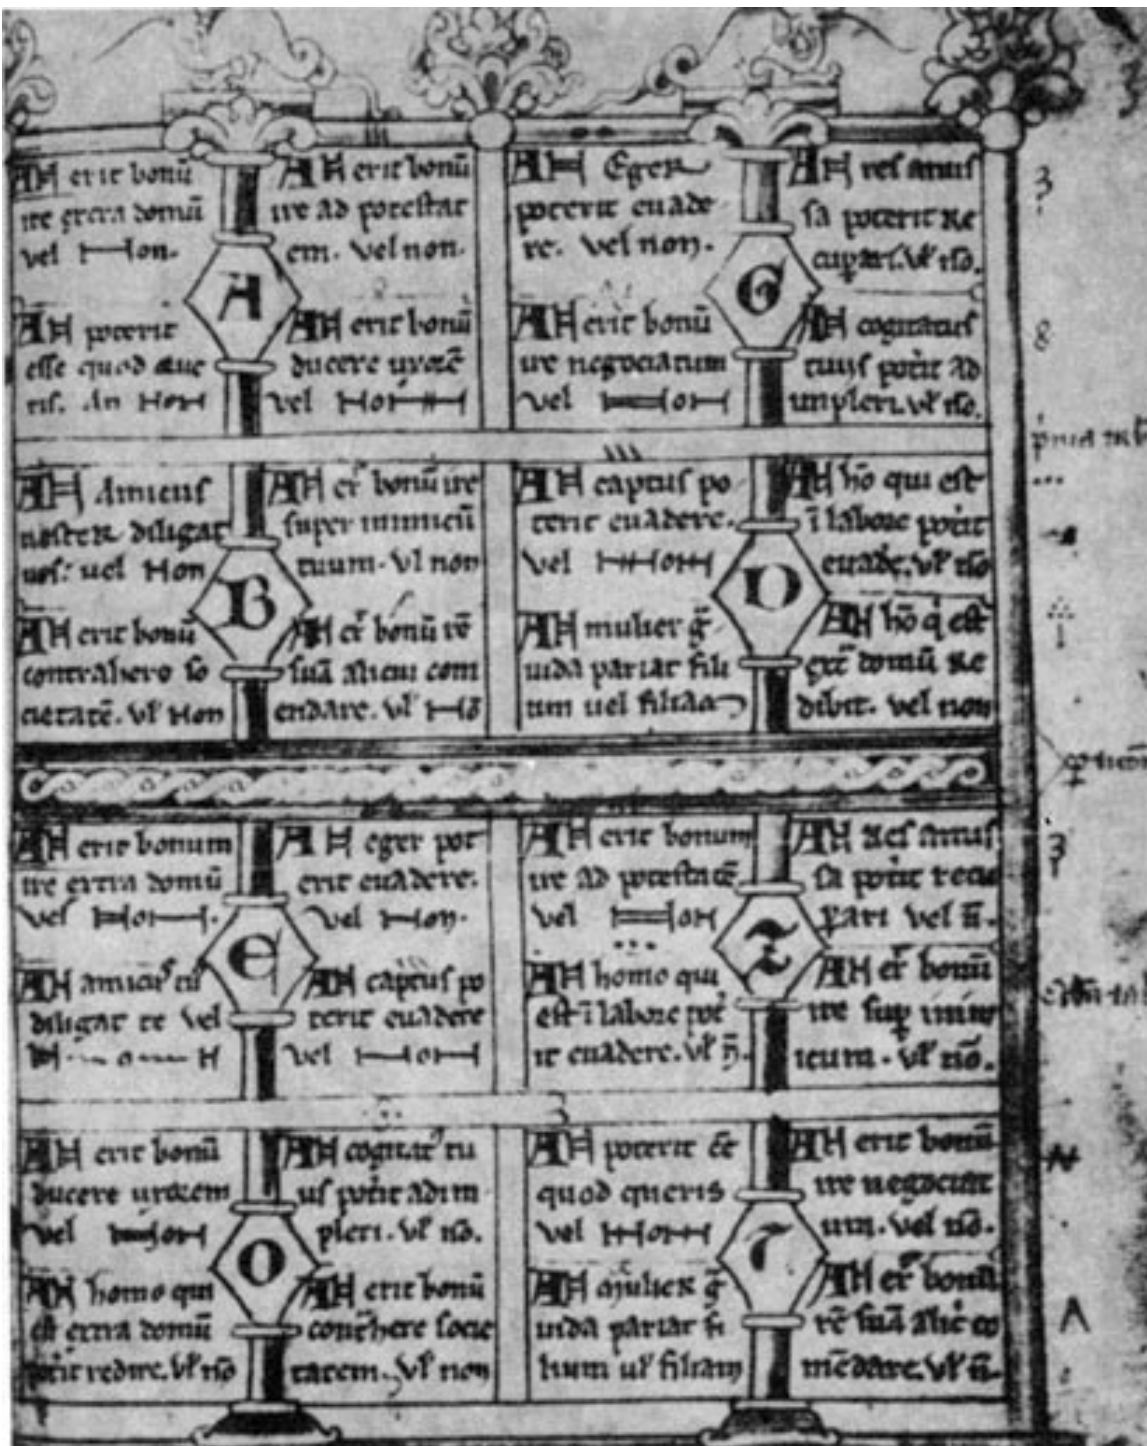 AN erit bonū
ire extra domū
vel non.
AN poterit
esse quod que
ris. An non
A
AN erit bonū
ire ad potestat
em. vel non.
AN erit bonū
ducere uxorē
vel non
AN Eger
poterit euade
re. vel non.
AN erit bonū
ire negociatum
vel non
G
AN res amis
sa poterit re
cuꝑari. vł nō.
AN cogitatus
tuus potit ad
impleri. vł nō.
AN Amicus
noster diligat
uos. uel non
AN erit bonū
contrahero so
cietatē. vł non
B
AN er̄ bonū ire
super inimicū
tuum. vl non
AN er̄ bonū rē
suā alicui com
endare. vł nō
AN captus po
terit euadere.
vel non
AN mulier g̃
uida pariat fili
um uel filiam
D
AN hō qui est
ī labore potit
euadē. vł nō
AN hō q̇ est
ext̄ domū re
dibit. vel non
AN erit bonum
ire extra domū
vel non.
AN amicus tu
diligat te vel
non
E
AN eger pot
erit euadere.
vel non.
AN captus po
terit euadere
vel non
AN erit bonum
ire ad potestatē
vel non
AN homo qui
est ī labore pot
it euadere. vł n̄.
Z
AN res amis
sa potit recu
ꝑari vel n̄.
AN er̄ bonū
ire suꝑ inim
icum. vł nō.
AN erit bonū
ducere uxorem
vel non
AN homo qui
est extra domū
potit redire. vł nō
O
AN cogitat᾽ tu
us potit adim
pleri. vł nō.
AN erit bonū
cont̃here socie
tatem. vł non
AN poterit ēē
quod queris
vel non
AN Mulier g̃
uida pariat fi
lium uł filiam
T
AN erit bonū
ire negociat
um. vel nō.
AN er̄ bonū
rē suā alic̓ co
mēdare. vł n̄.
3
8
3
N
A